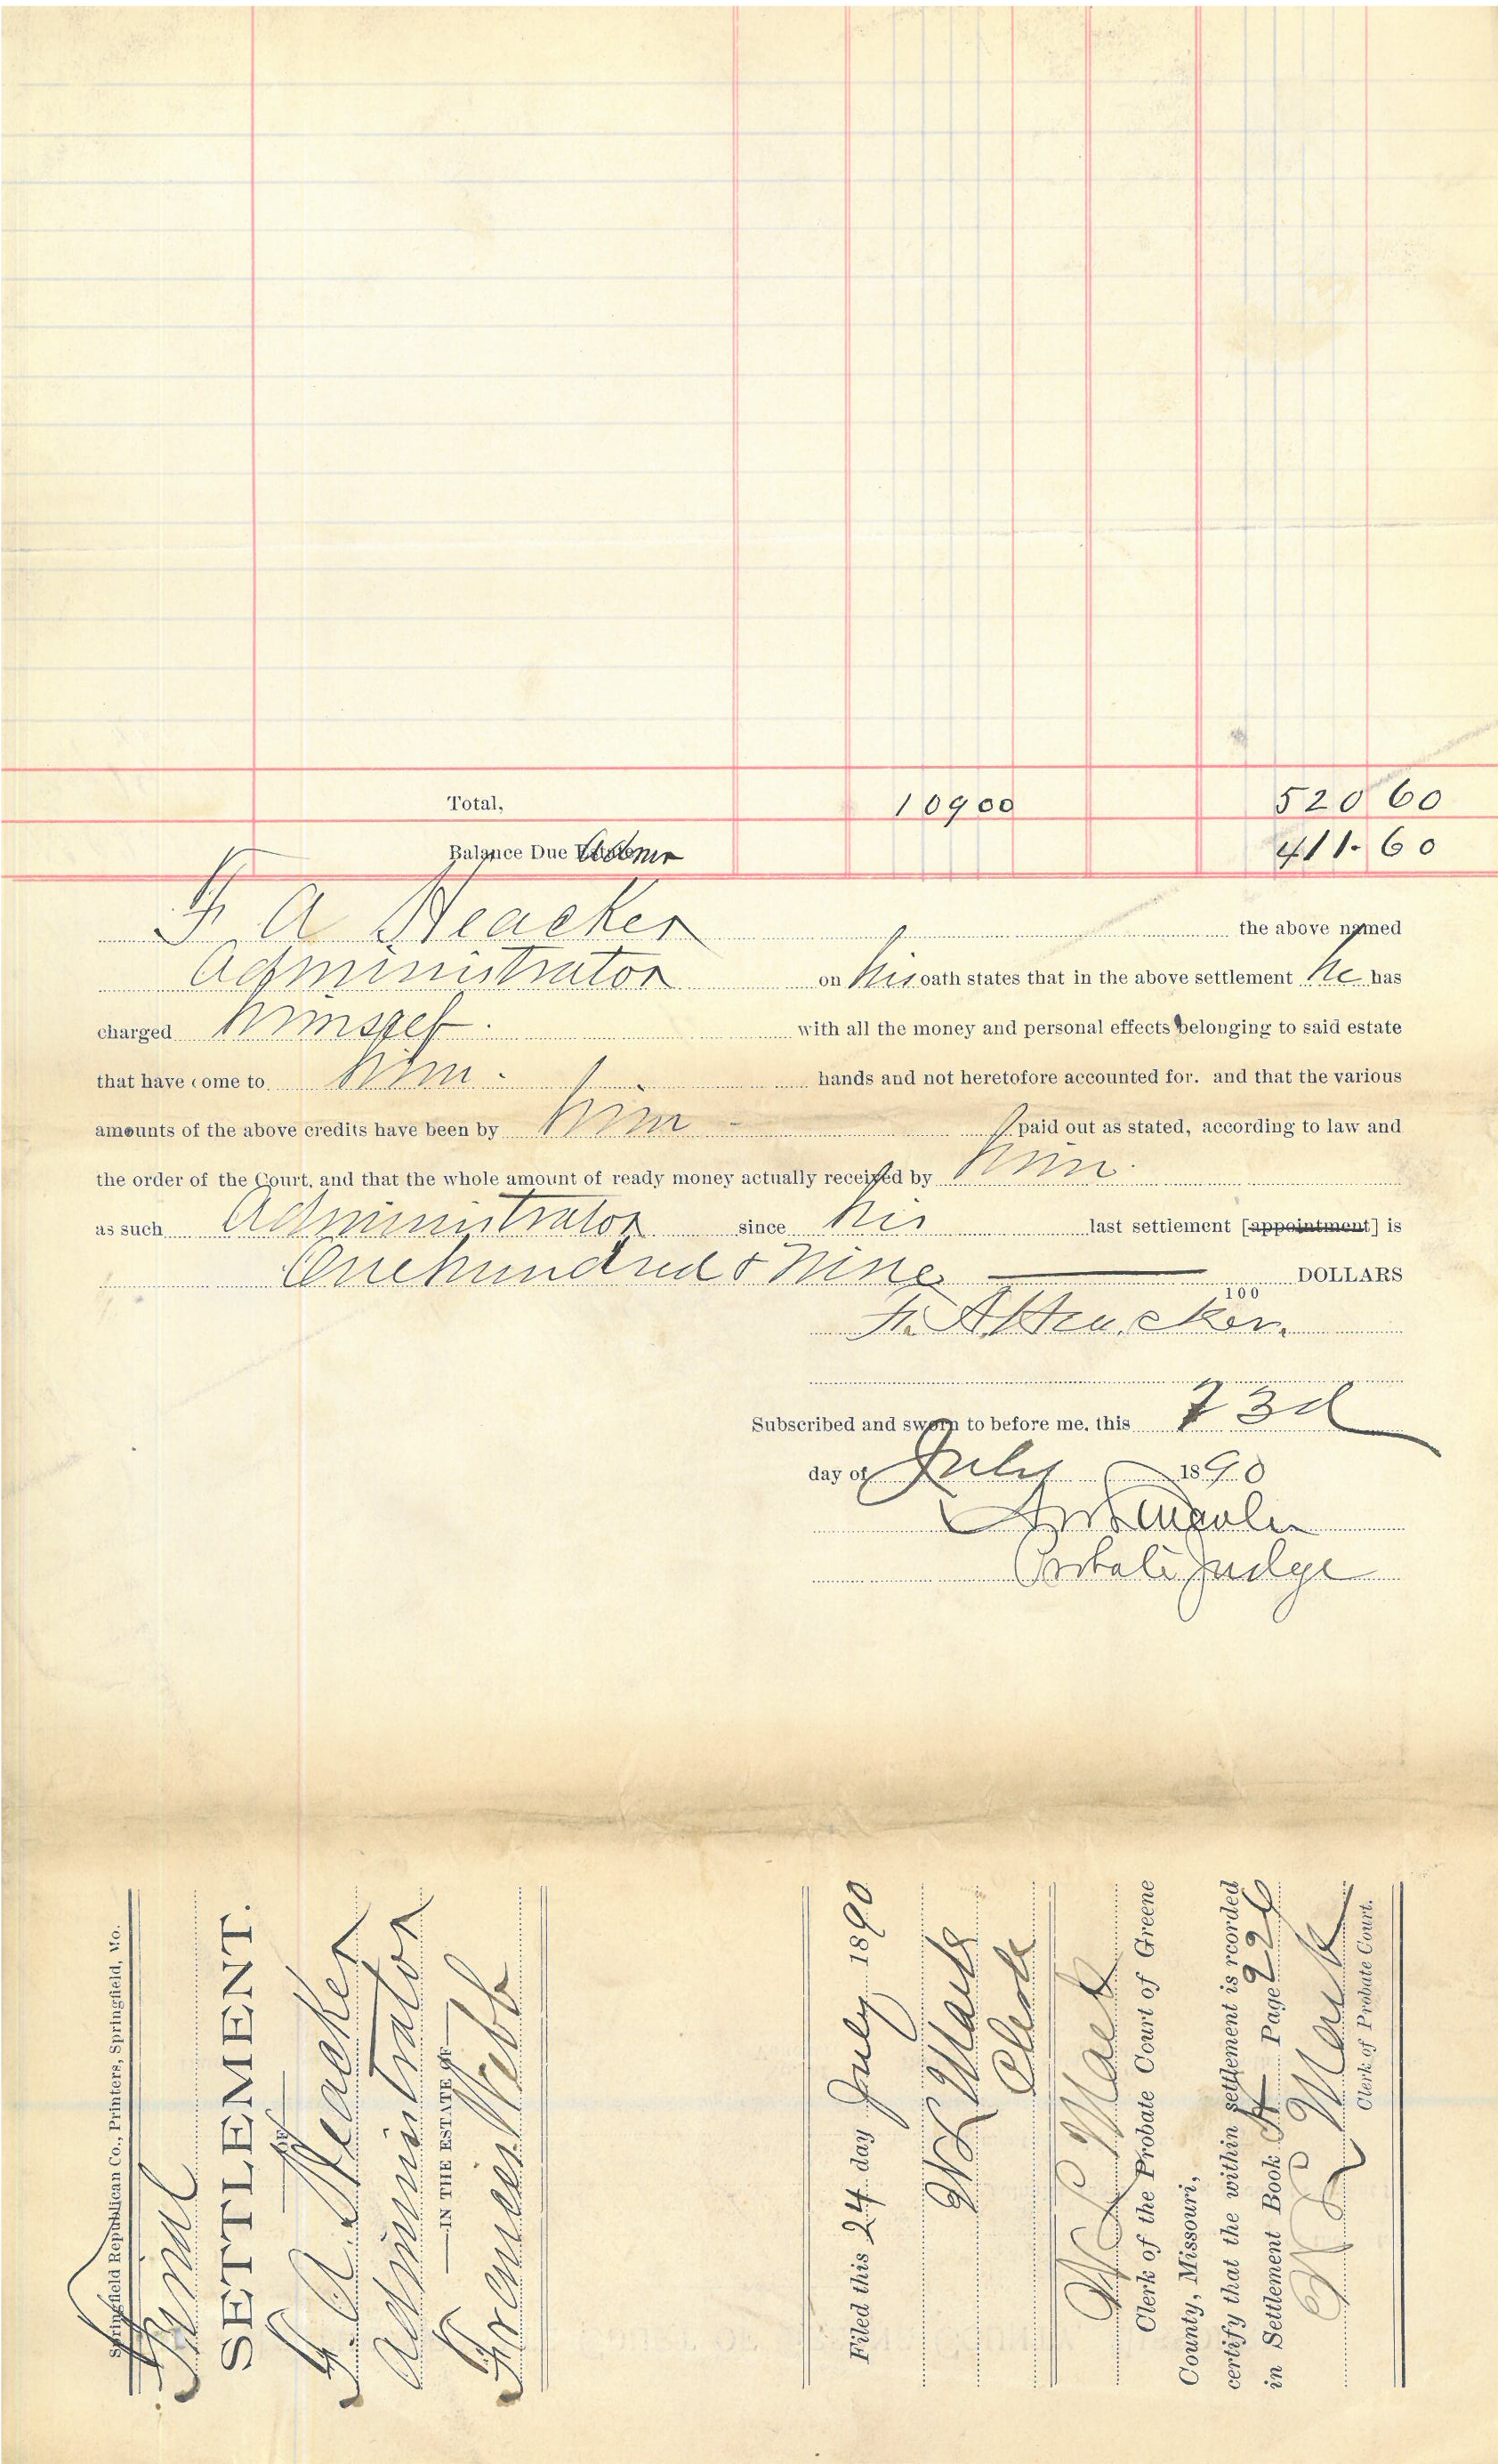 Total, 109 00 520 60
Balance Due Estate Admr 411.60
F A Heacker the above named
Administrator on his oath states that in the above settlement he has
charged himself with all the money and personal effects belonging to said estate
that have come to him hands and not heretofore accounted for. and that the various
amounts of the above credits have been by him paid out as stated, according to law and
the order of the Court, and that the whole amount of ready money actually received by him
as such Administrator since his last settlement [appointment] is
One hundred & Nine DOLLARS
100
F. A. Heacker.
Subscribed and sworn to before me, this 23d
day of July 1890
Probate Judge
Springfield Republican Co., Printers, Springfield, Mo.
Final
SETTLEMENT.
OF
F. A. Heacker
Administrator
IN THE ESTATE OF
Frances Webb
Filed this 24 day July 1890
W L Mack
Clerk
W L Mack
Clerk of the Probate Court of Greene
County, Missouri,
certify that the within settlement is rcorded
in Settlement Book H Page 226
W L Mack
Clerk of Probate Court.